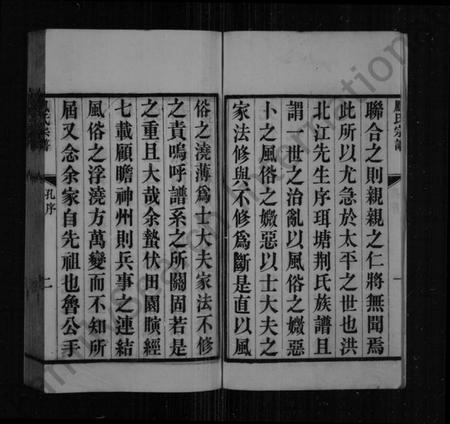 聯合之則親親之仁將無聞焉
此所以尤急於太平之世也洪
北江先生序珥塘荆氏族譜且
謂一世之治亂以風俗之媺惡
卜之風俗之媺惡以士大夫之
家法修與不修爲斷是直以風
俗之澆薄爲士大夫家法不修
之責嗚呼譜系之所關固若是
之重且大哉余蟄伏田園瞚經
七載顧瞻神州則兵事之連結
風俗之浮澆方萬變而不知所
屆又念余家自先祖也魯公手
孔序
二